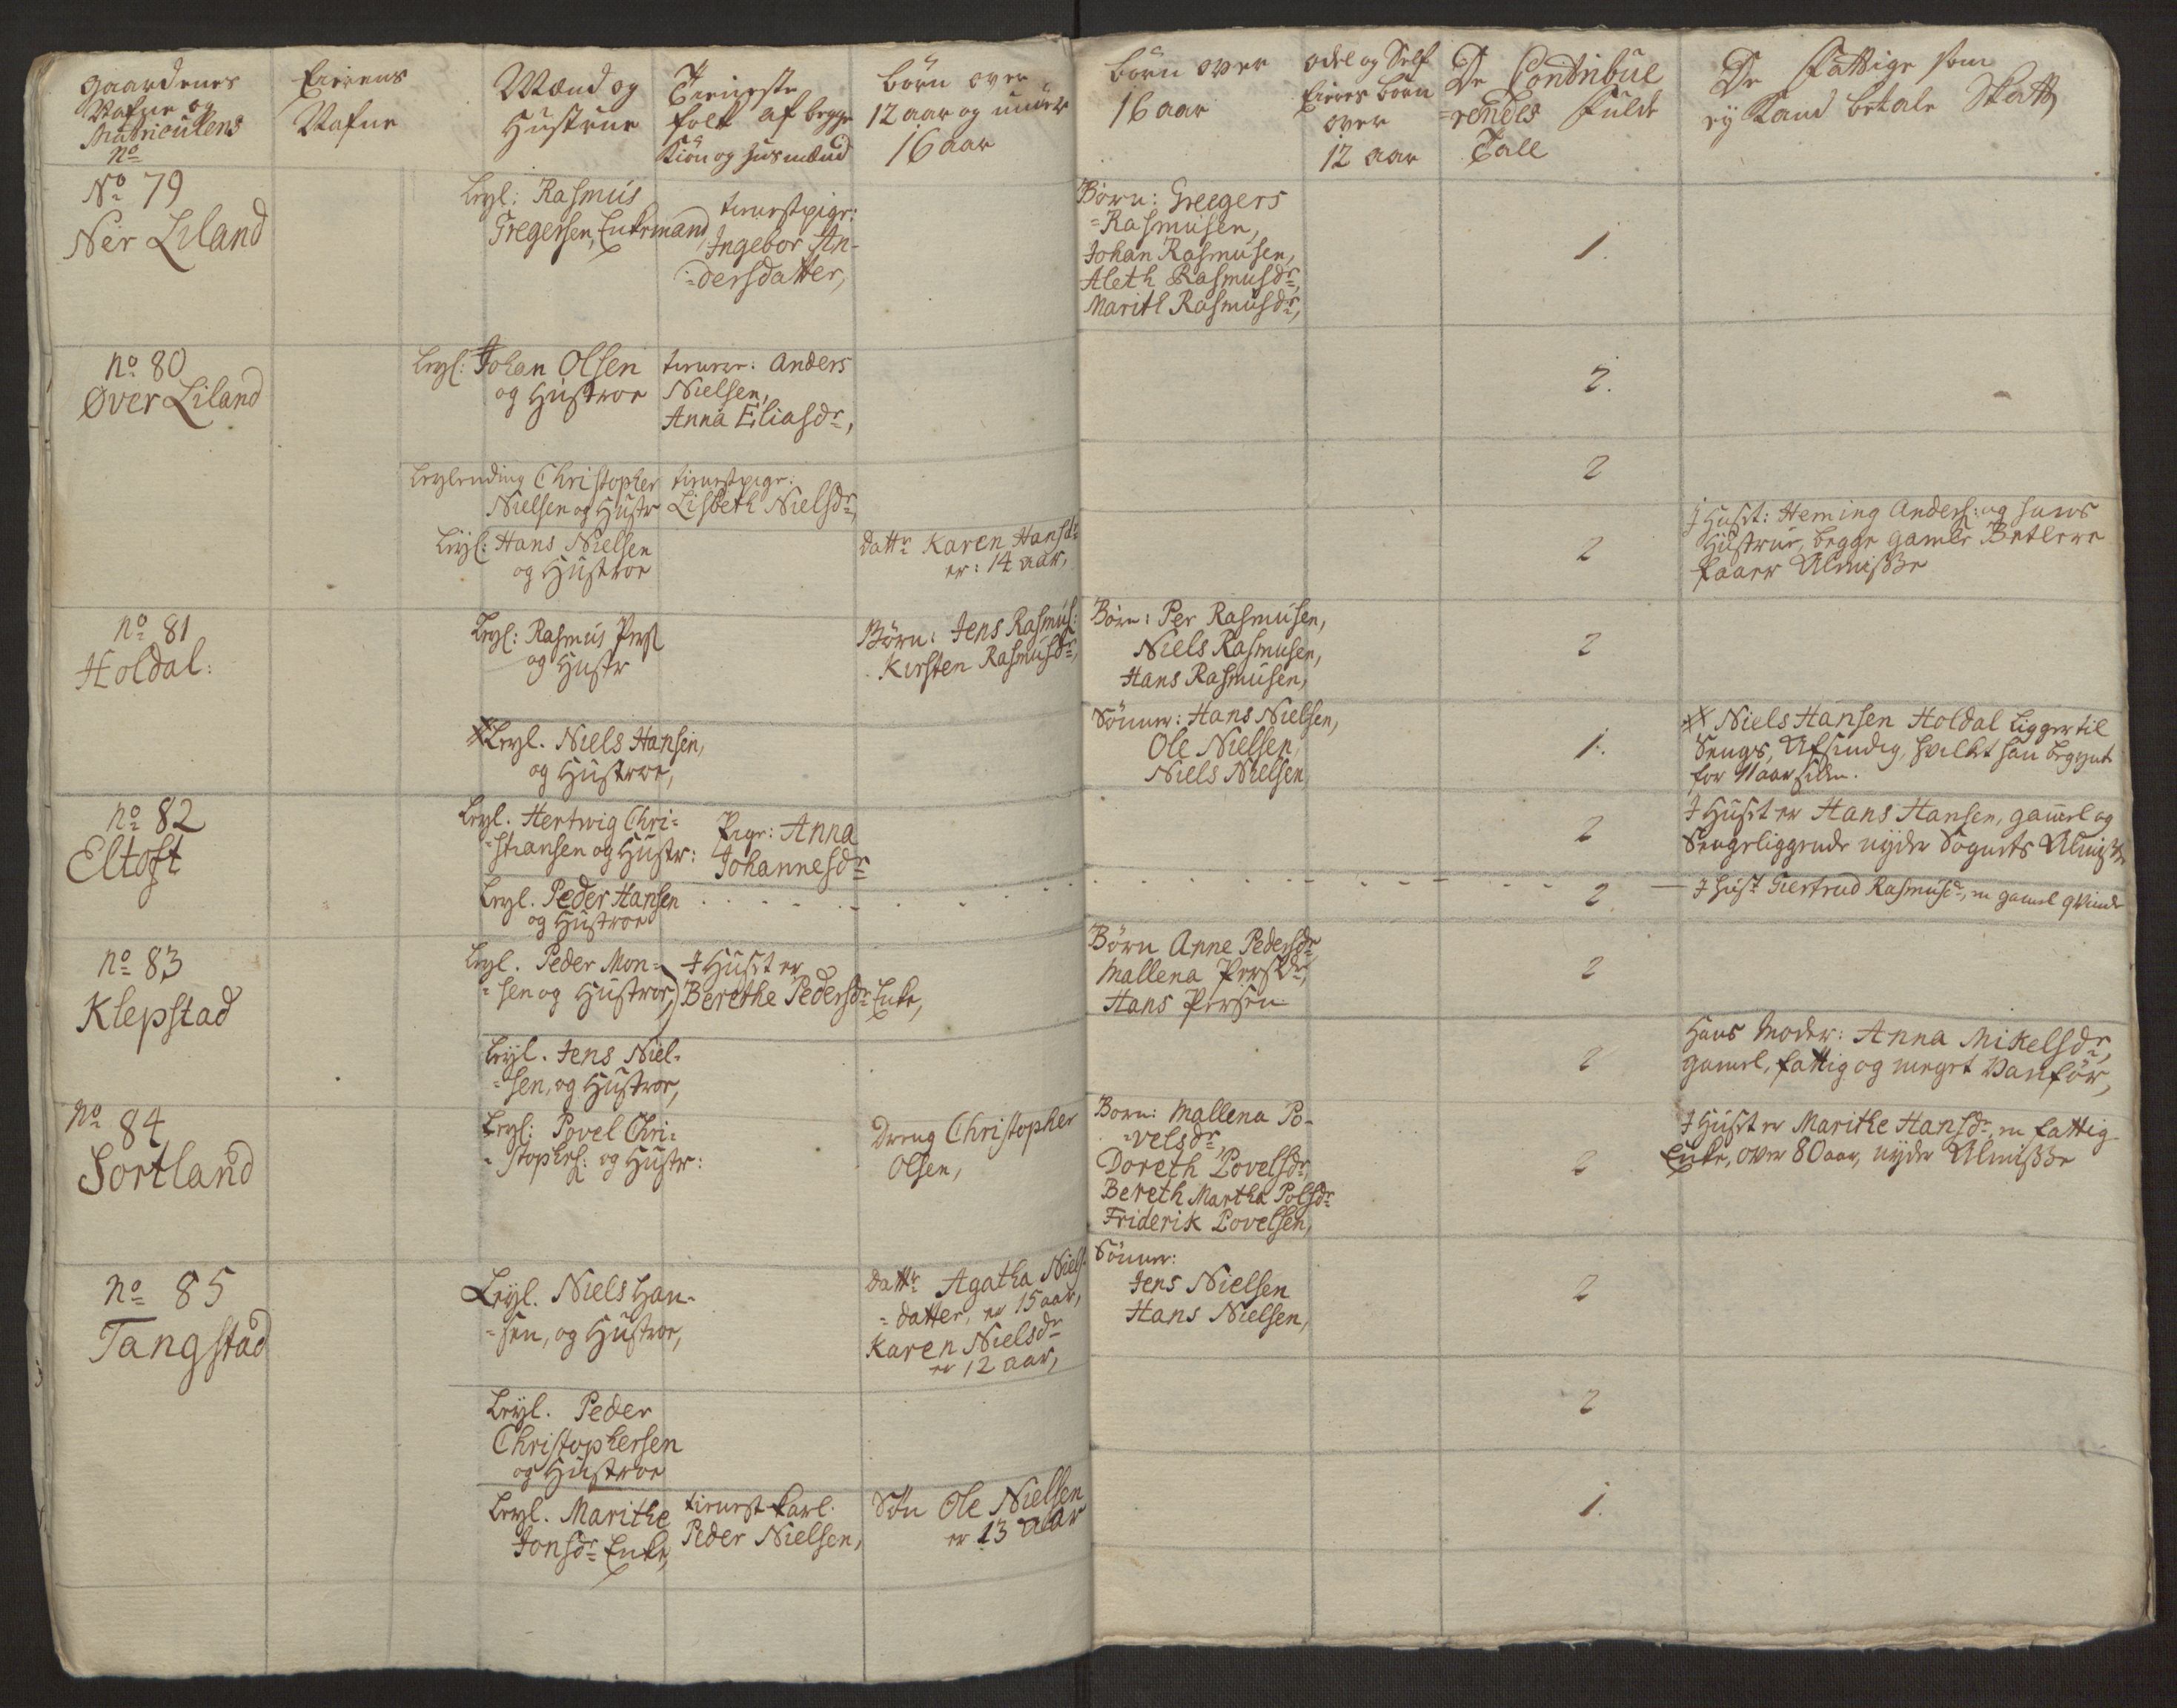 Gaardenes
Nafne og
Matriculens
No
Eierens
Nafne
Mænd og
Hustrue
Tieniste
folk af begge
Kiön og husmænd
börn over
12 aar og under
16 aar
börn over
16 aar
odel og Self
Eieres börn
over
12 aar
De Contribue
=rendes fulde
Tall
De Fattige som
ey kand betale Skatt
No 79
Ner Liland
Leyl: Rasmus
Gregersen, Enkemand
tienestpige:
Ingebor An-
=dersdatter,
Börn: Greegers
=Rasmusen,
Johan Rasmusen,
Aleth Rasmusdr,
Marith Rasmusdr,
1.
no 80
Øver Liland
Leyl: Johan Olsen
og Hustroe
tienere: Anders
Nielsen,
Anna Eliasdr,
2.
Leylending Christopher
Nielsen og Hustr
tienestpige:
Lisbeth Nielsdr,
2
Leyl: Hans Nielsen
og Hustroe
dattr Karen Hansdr
er: 14 aar,
2
J Huset: Heming Anders: og hans
Hustrue, begge gamle Betlere
faaer Almisse
no 81
Holdal:
Leyl: Rasmus Pers
og Hustr
Börn: Jens Rasmus:
Kirsten Rasmusdr,
Börn: Per Rasmusen,
Niels Rasmusen,
Hans Rasmusen,
2
Leyl. Niels Hansen,
og Hustroe,
Sönner: Hans Nielsen,
Ole Nielsen,
Niels Nielsen
1.
Niels Hansen Holdal Ligger til
Sengs, Afsindig, hvilket han begynte
for 11 aar siden.
no 82
Eltoft
Leyl. Hertwig Chri=
=stiansen og Hustr:
Pige: Anna
Johannesdr
2
J Huset er Hans Hansen, gamel og
Sengeliggende nyder Sognets Almisse
Leyl. Peder Hansen
og Hustroe
2
J hust Giertrud Rasmusdr, en gamel qvinde
no 83
Klepstad
Leyl. Peder Mon-
=sen og Hustroe,
J Huset er
Berethe Pedersdr Enke,
Börn Anne Pedersdr
Mallena Persdr,
Hans Persen
2
Leyl. Jens Niel-
=sen, og Hustroe,
2
Hans Moder: Anna Mikelsdr,
gamel, fattig og meget Vanför,
No 84
Sortland
Leyl: Povel Chri=
=stophers: og Hustr:
Dreng Christopher
Olsen,
Born: Mallena Po-
=velsdr
Doreth Povelsdr,
Bereth Martha Polsdr
Friderik Povelsen,
2
J Huset er Marithe Hansdr, en fattig
Enke, over 80 aar, nyder Almisse
no 85
Tangstad
Leyl. Niels Han-
=sen, og Hustroe,
dattr Agatha Niels
=datter, er 15 aar,
Karen Nielsdr
er 12 aar,
Sönner:
Jens Nielsen
Hans Nielsen,
2
Leyl. Peder
Christophersen
og Hustroe
2
Leyl. Marithe
Jonsdr Enke,
tienest karl.
Peder Nielsen,
Sön Ole Nielsen
er 13 aar
1.